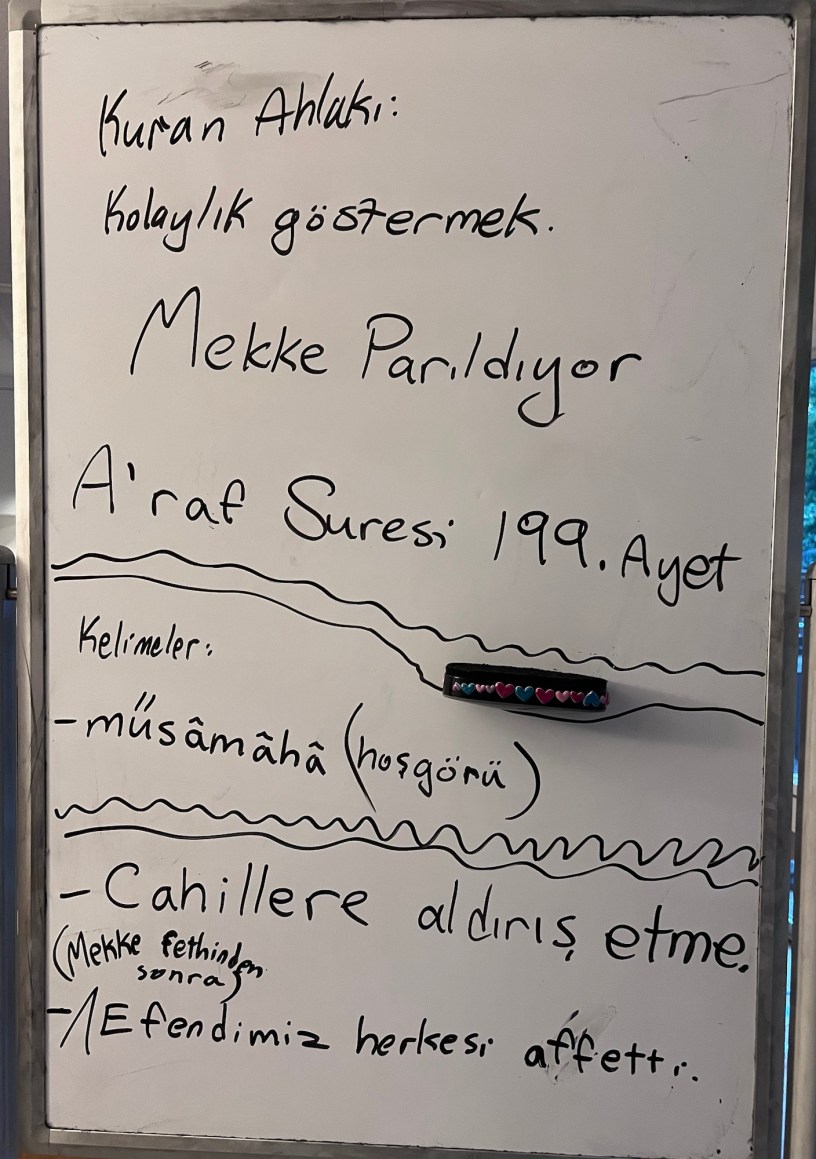 Kuran Ahlakı:
Kolaylık göstermek.
Mekke Parıldıyor
A'raf Suresi 199. Ayet
Kelimeler:
- müsâmâhâ (hoşgörü)
- Cahillere aldırış etme.
(Mekke fethinden
sonra)
- Efendimiz herkesi affetti.